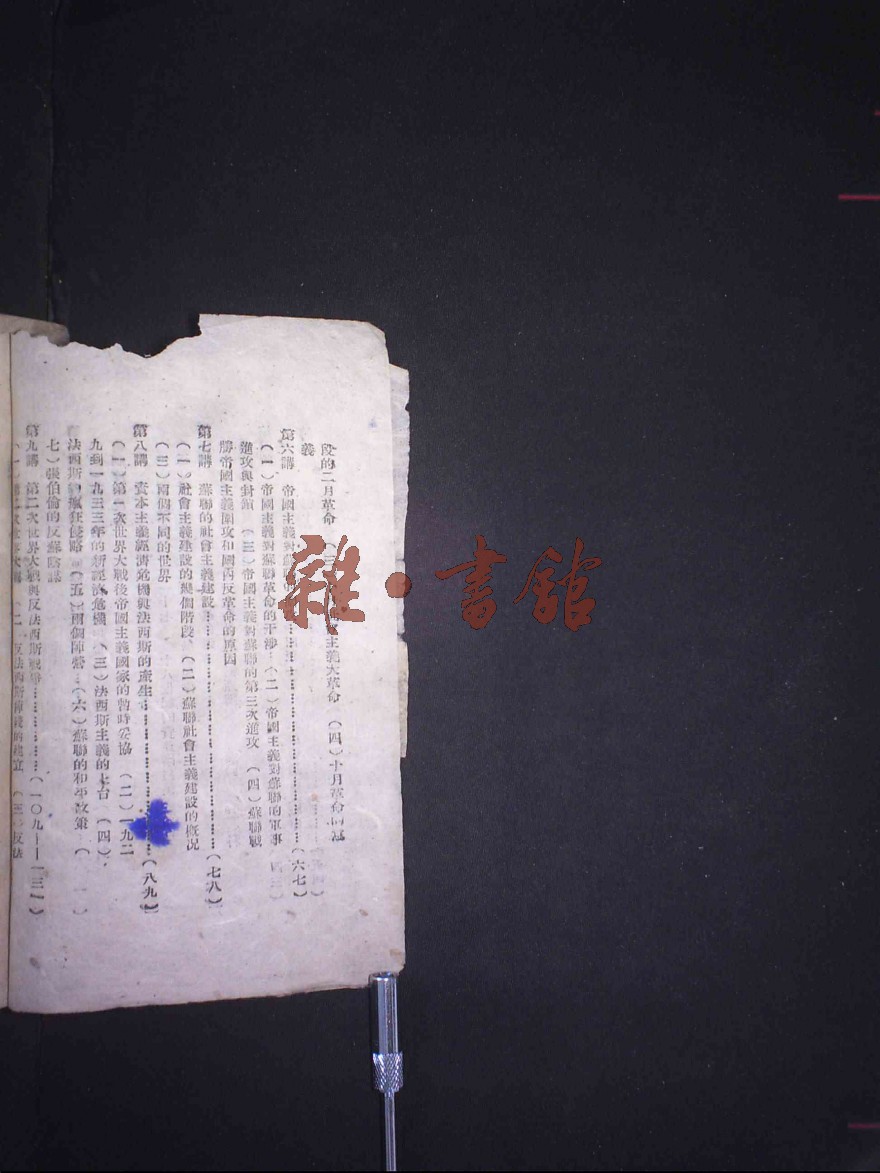 段的二月革命 主義大革命 (四)十月革命
義
第六講 帝國主義對蘇聯的……(六七)
(一)帝國主義對蘇聯革命的干涉 (二)帝國主義對蘇聯的軍事
進攻與封鎖 (三)帝國主義對蘇聯的第三次進攻 (四)蘇聯戰
勝帝國主義圍攻和國內反革命的原因
第七講 蘇聯的社會主義建設……(七八)
(一)社會主義建設的幾個階段 (二)蘇聯社會主義建設的概況
(三)兩個不同的世界
第八講 資本主義經濟危機與法西斯的產生……(八九)
(一)第一次世界大戰後帝國主義國家的暫時妥協 (二)一九二
九到一九三三年的新經濟危機 (三)法西斯主義的上台 (四)
法西斯的瘋狂侵略 (五)兩個陣營 (六)蘇聯的和平政策 (
七)張伯倫的反蘇陰謀
第九講 第二次世界大戰與反法西斯戰爭……(一〇九——一三一)
(二)反法西斯陣綫的建立 (三)反法
雜·書館